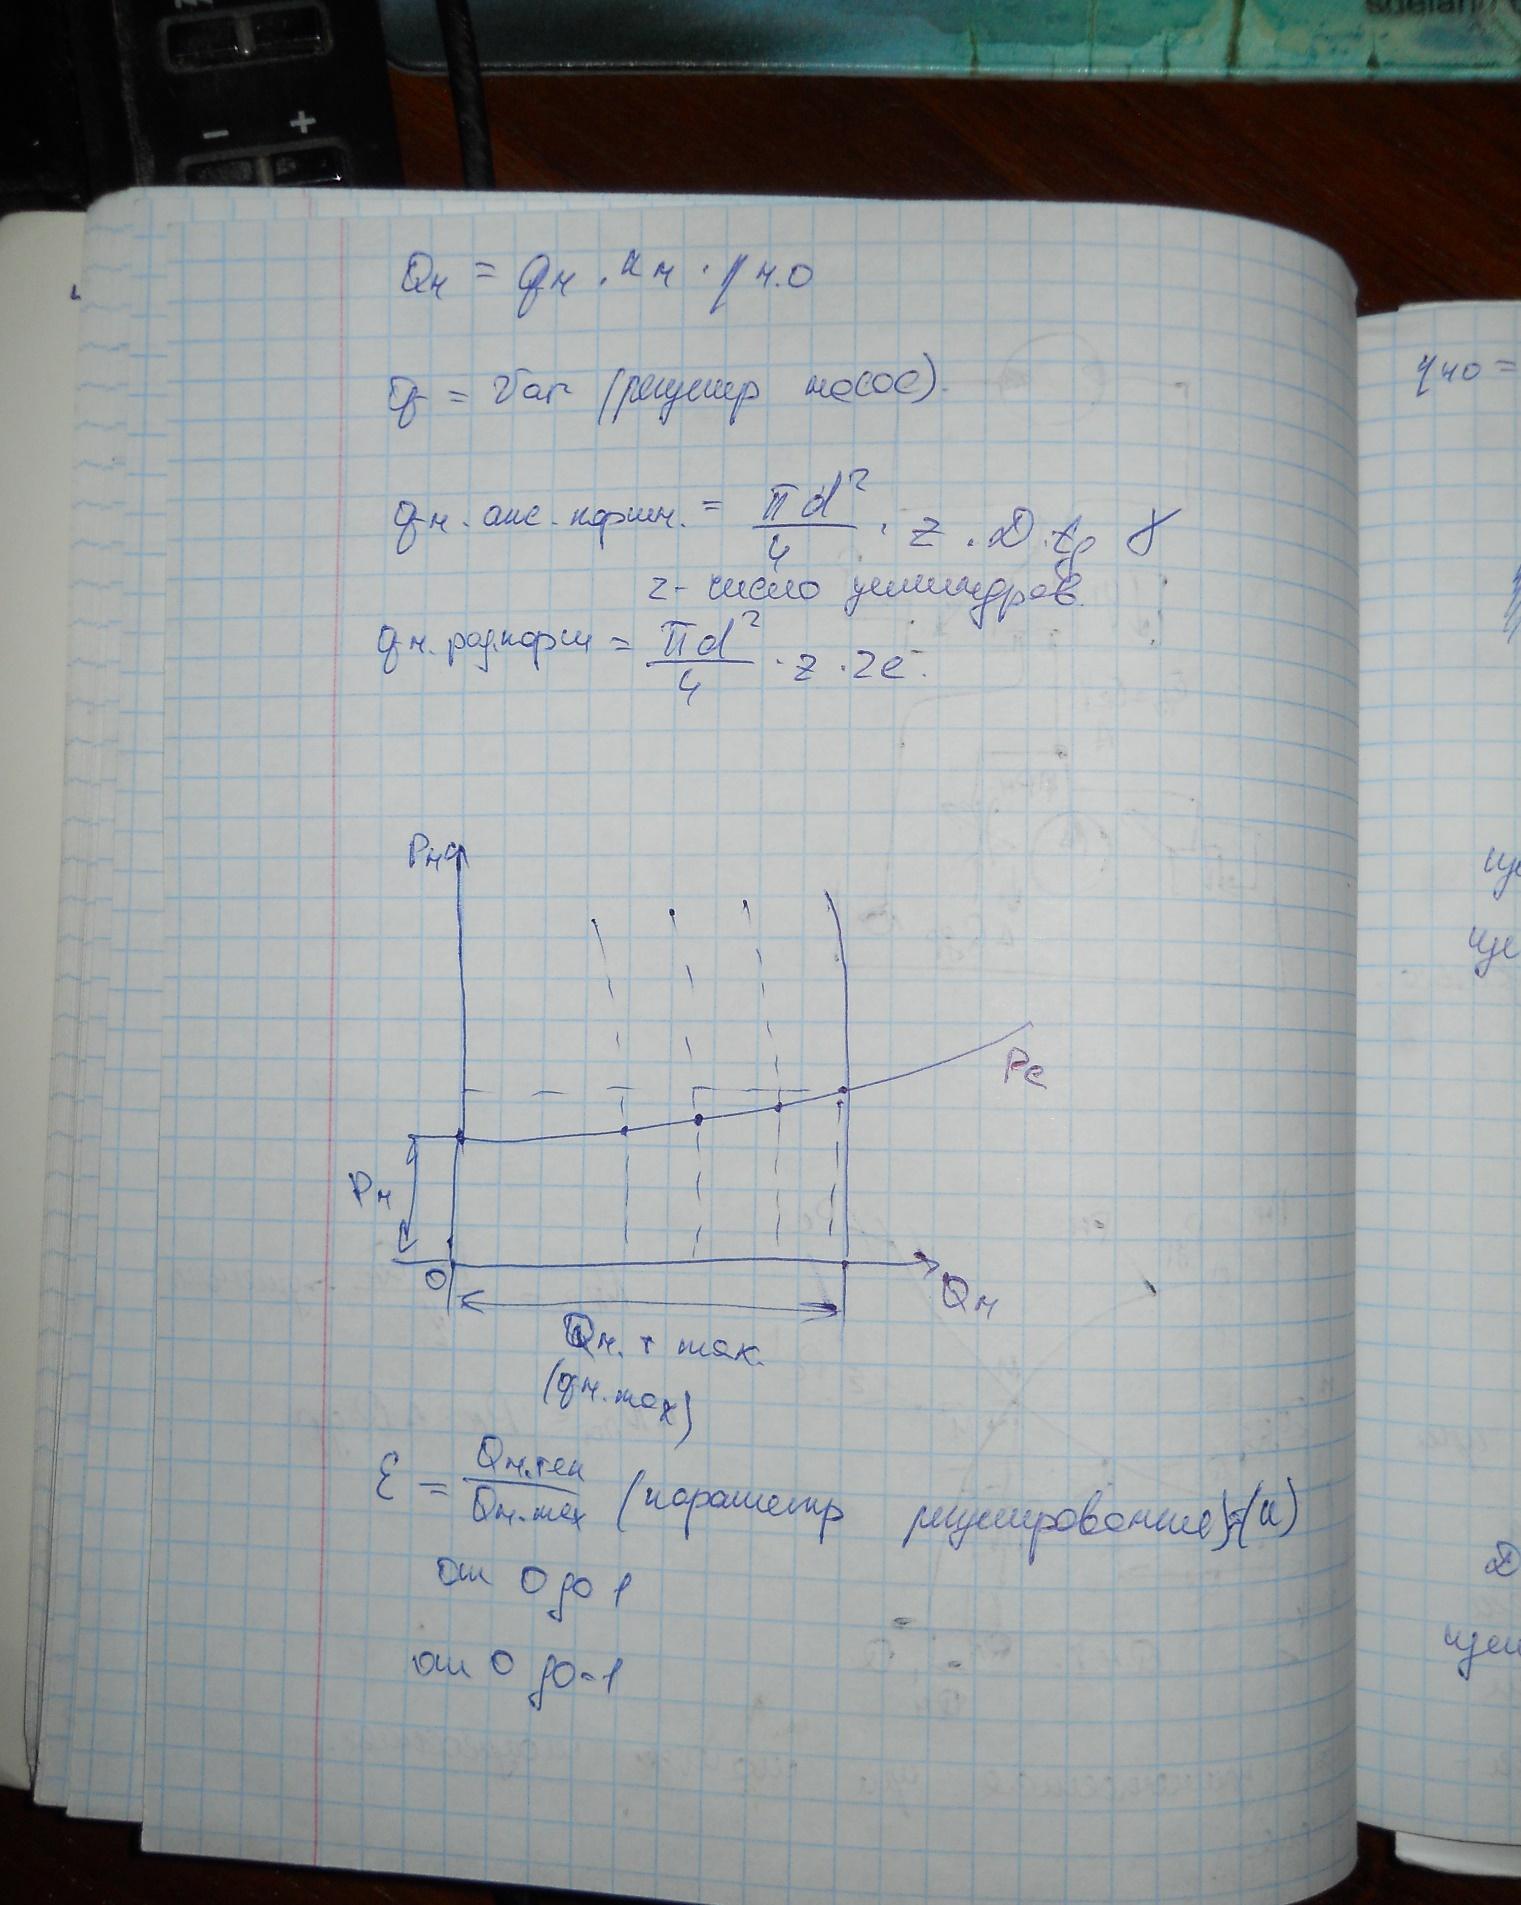 sdelano
− +
Qн = qн · nн · ηн.о
q = Var (регулир насос).
qн. акс. поршн. = πd²/4 · z · D · tg γ
z - число цилиндров.
qн. рад.порш = πd²/4 · z · 2e.
Pн
Pc
Pн
0
Qн
Qн. т max.
(qн. max)
ε = Qн.тек/Qн.max (параметр регулирование) (u)
от 0 до 1
от 0 до -1
ηно =